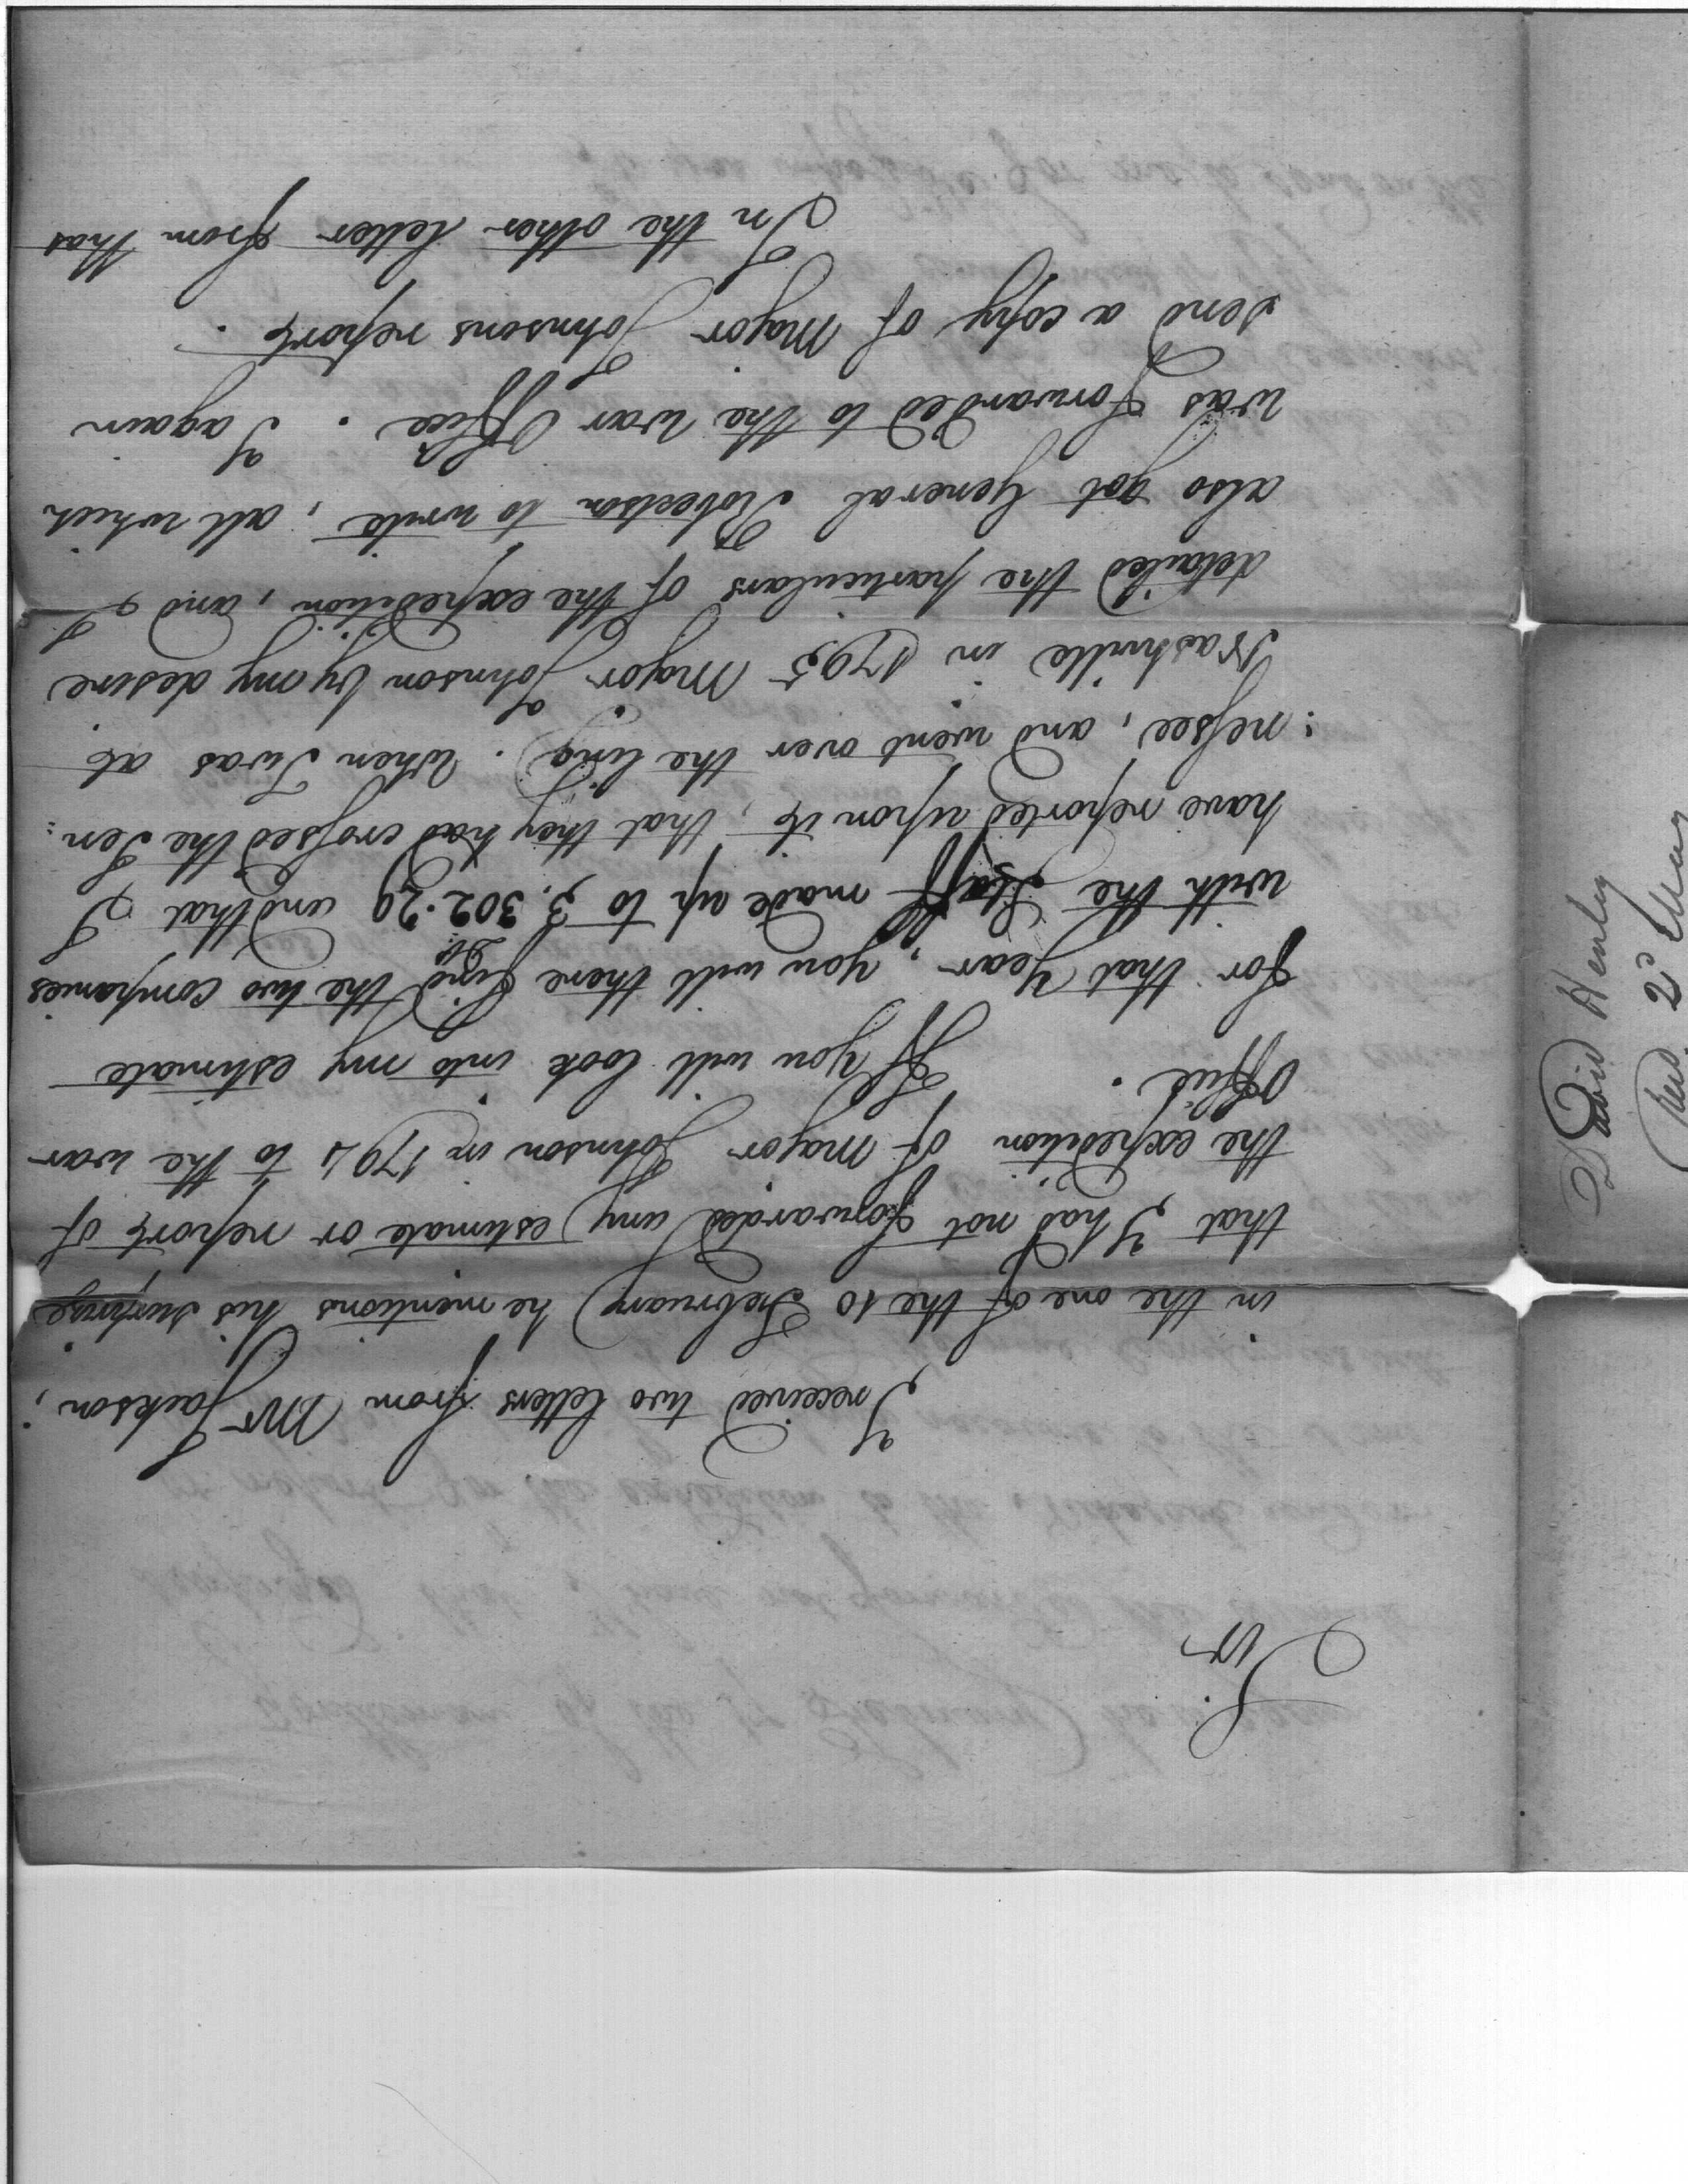 Sir
I received two letters from Mr Jackson;
in the one of the 10 February he mentions his surprize
that I had not forwarded any estimate or report of
the expedition of Major Johnson in 1794 to the war
Office. If you will look into my estimate
for that year, you will there find the two companies
Do
with the Staff made up to 3.302.29 and that I
have reported upon it, that they had crossed the Ten:
:nessee, and went over the line. When I was at
Nashville in 1795 Major Johnson by my desire
detailed the particulars of the expedition, and I
also got General Robertson to write, all which
was forwarded to the war Office. I again
send a copy of Major Johnsons report.
In the other letter from that
David Henley
2d